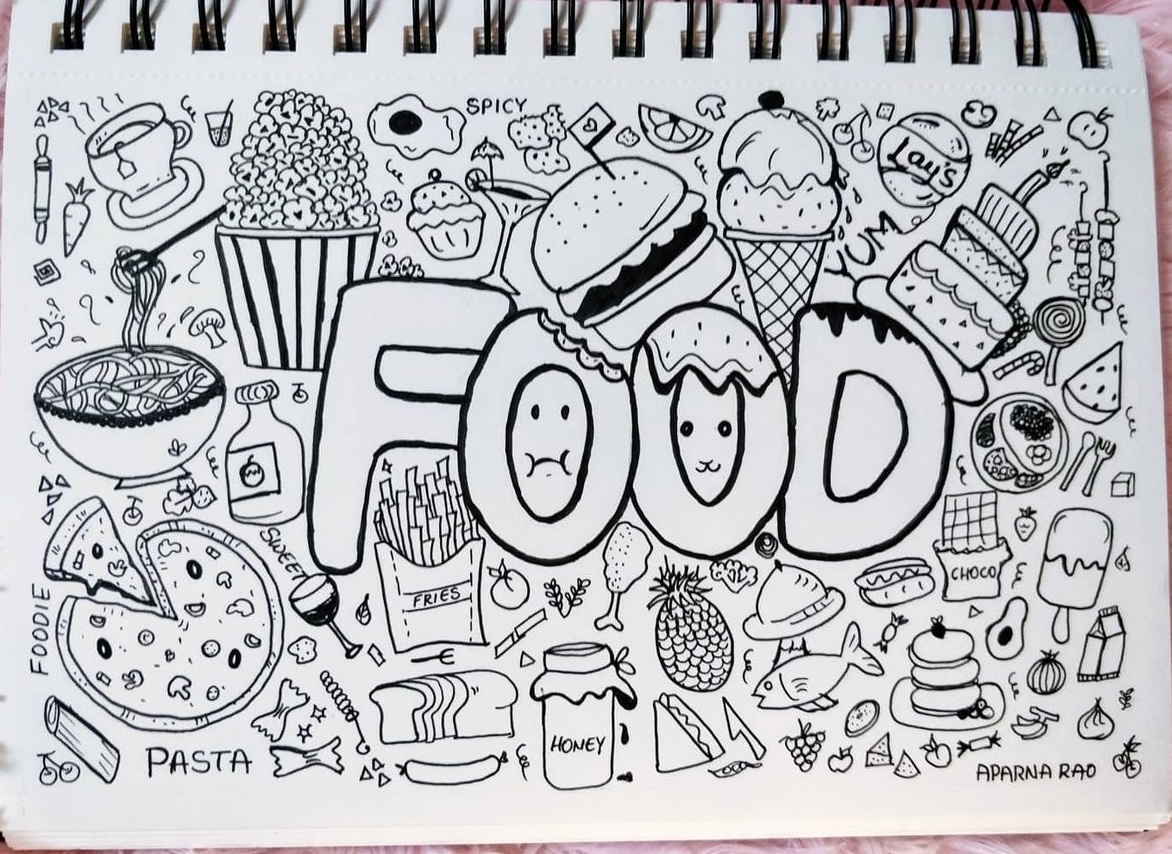 SPICY
Lay's
YUM
FOOD
SWEET
FRIES
CHOCO
FOODIE
HONEY
PASTA
APARNA RAO